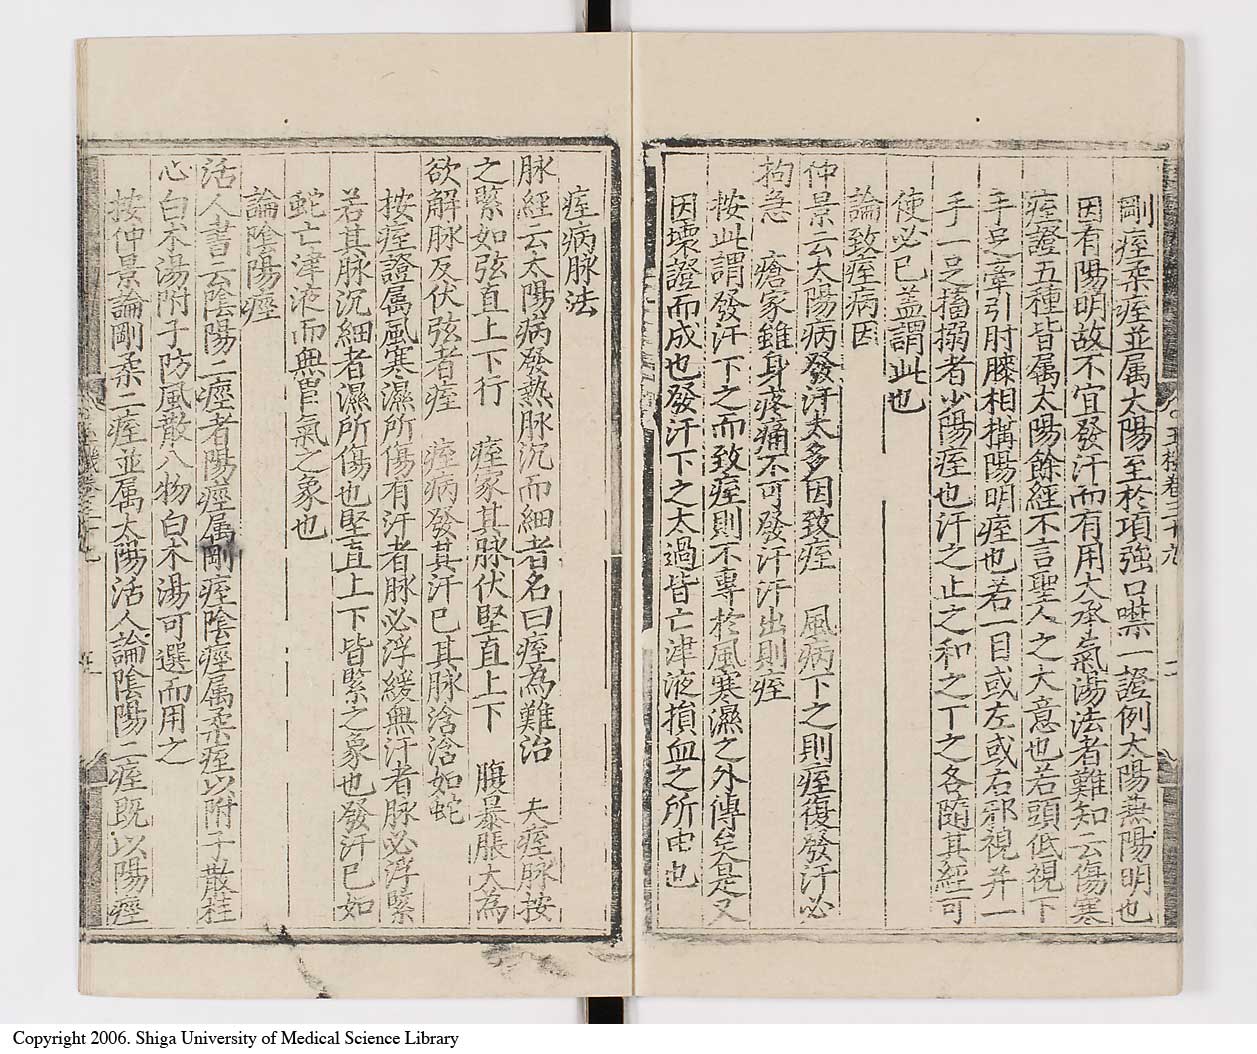 剛痓柔痓並属太陽至於項強口噤一證例太陽兼陽明也
因有陽明故不宜發汗而有用大承氣湯法者難知云傷寒
痓證五種皆属太陽餘經不言聖人之大意也若頭低視下
手足牽引肘膝相搆陽明痓也若一目或左或右邪視并一
手一足搐搦者少陽痓也汗之止之和之下之各隨其經可
使必已蓋謂此也
論致痓病因
仲景云太陽病發汗太多因致痓　風病下之則痓復發汗必
拘急　瘡家雖身疼痛不可發汗汗出則痓
按此謂發汗下之而致痓則不專於風寒濕之外傳矣是又
因壞證而成也發汗下之太過皆亡津液損血之所由也
痓病脉法
脉經云太陽病發熱脉沉而細者名曰痓為難治　夫痓脉按
之緊如弦直上下行　痓家其脉伏堅直上下　腹暴脹大為
欲解脉反伏弦者痓　痓病發其汗已其脉浛浛如蛇
按痓證属風寒濕所傷有汗者脉必浮緩無汗者脉必浮緊
若其脉沉細者濕所傷也堅直上下皆緊之象也發汗已如
蛇亡津液而無胃氣之象也
論陰陽痙
活人書云陰陽二痙者陽痙属剛痓陰痙属柔痓以附子散桂
心白朮湯附子防風散八物白朮湯可選而用之
按仲景論剛柔二痓並属太陽活人論陰陽二痓既以陽痙